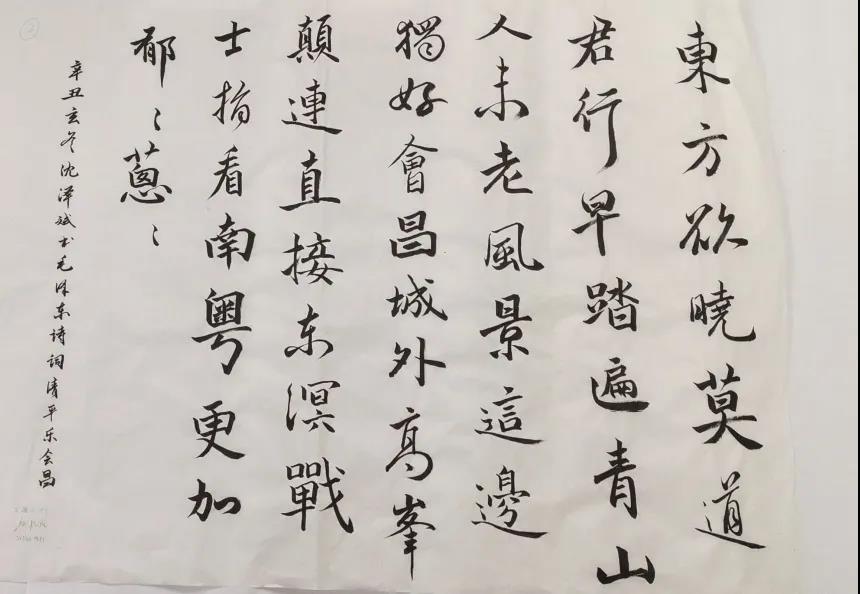 東方欲曉莫道
君行早踏遍青山
人未老風景這邊
獨好會昌城外高峯
顛連直接东溟戰
士指看南粵更加
郁〻蔥〻
辛丑玄冬沈泽斌书毛泽东诗词清平乐会昌
②